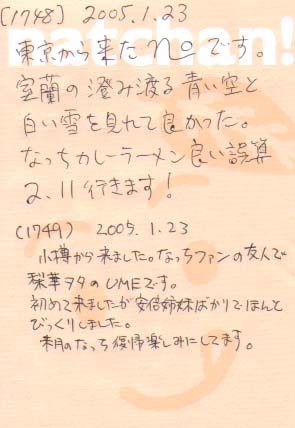 (1748) 2005.1.23
natchan!
東京から来たnoです。
室蘭の澄み渡る青い空と
白い雪を見れて良かった。
なっちカレーラーメン良い誤算
2.11行きます!
(1749) 2005.1.23
小樽から来ました。なっちファンの友人で
梨華ヲタのUMEです。
初めて来ましたが安倍姉妹ばかりでほんと
びっくりしました。
来月のなっち復帰楽しみにしてます。